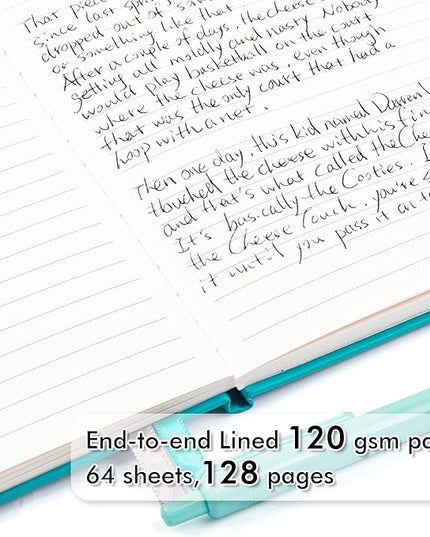 That piece
Since last spring
dropped out of
or something like that
After a couple of days, the cheese
getting all moldly and nasty. Nobody
would play basketball on the court
where the cheese was, even though
that was the only court that had a
hoop with a net.
Then one day, this kid named Darren
touched the cheese with his fin
and that's what called the Che
It's basically the Cooties. I
the Cheese Touch, you're s
it until you pass it on to
End-to-end Lined 120 gsm pa
64 sheets,128 pages